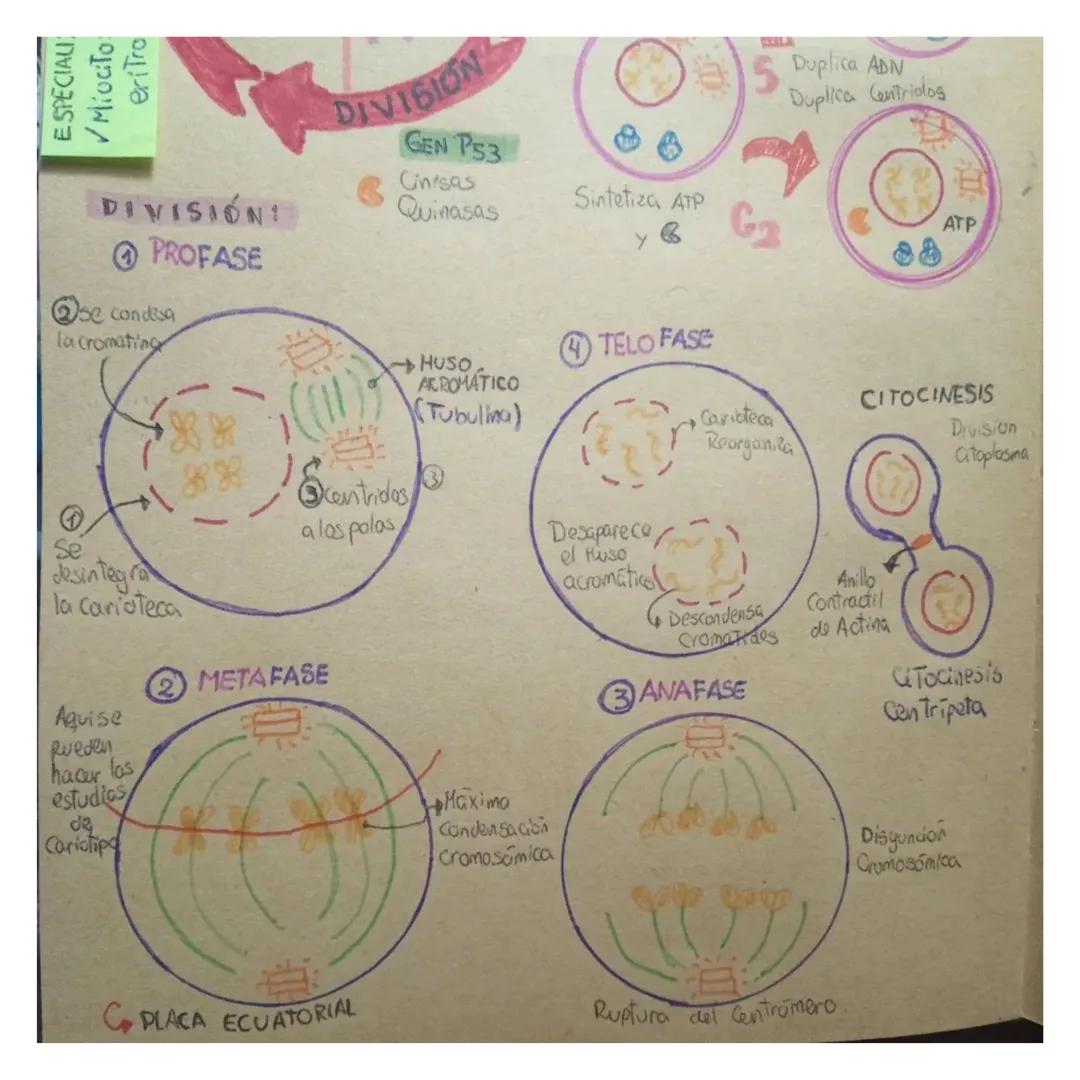 ESPECIALI
✓ Miocito
eritro
DIVISIÓN
GEN P53
Cinasas
Quinasas
Sintetiza ATP
y
S
Duplica ADN
Duplica Centriolos
G2
ATP
DIVISIÓN:
① PROFASE
② Se condesa
la cromatina
HUSO
ACROMÁTICO
(Tubulina)
③ centriolos
a los polos
③
①
Se
desintegra
la carioteca
④ TELOFASE
Carioteca
Reorganiza
Desaparece
el Huso
acromático
Descondensa
Cromatides
CITOCINESIS
División
Citoplasma
Anillo
Contractil
de Actina
CiTocinesis
Centrípeta
② METAFASE
Aqui se
pueden
hacer los
estudios
de
Cariotipo
Máxima
Condensación
cromosómica
PLACA ECUATORIAL
③ ANAFASE
Disyunción
Cromosómica
Ruptura del Centrómero.